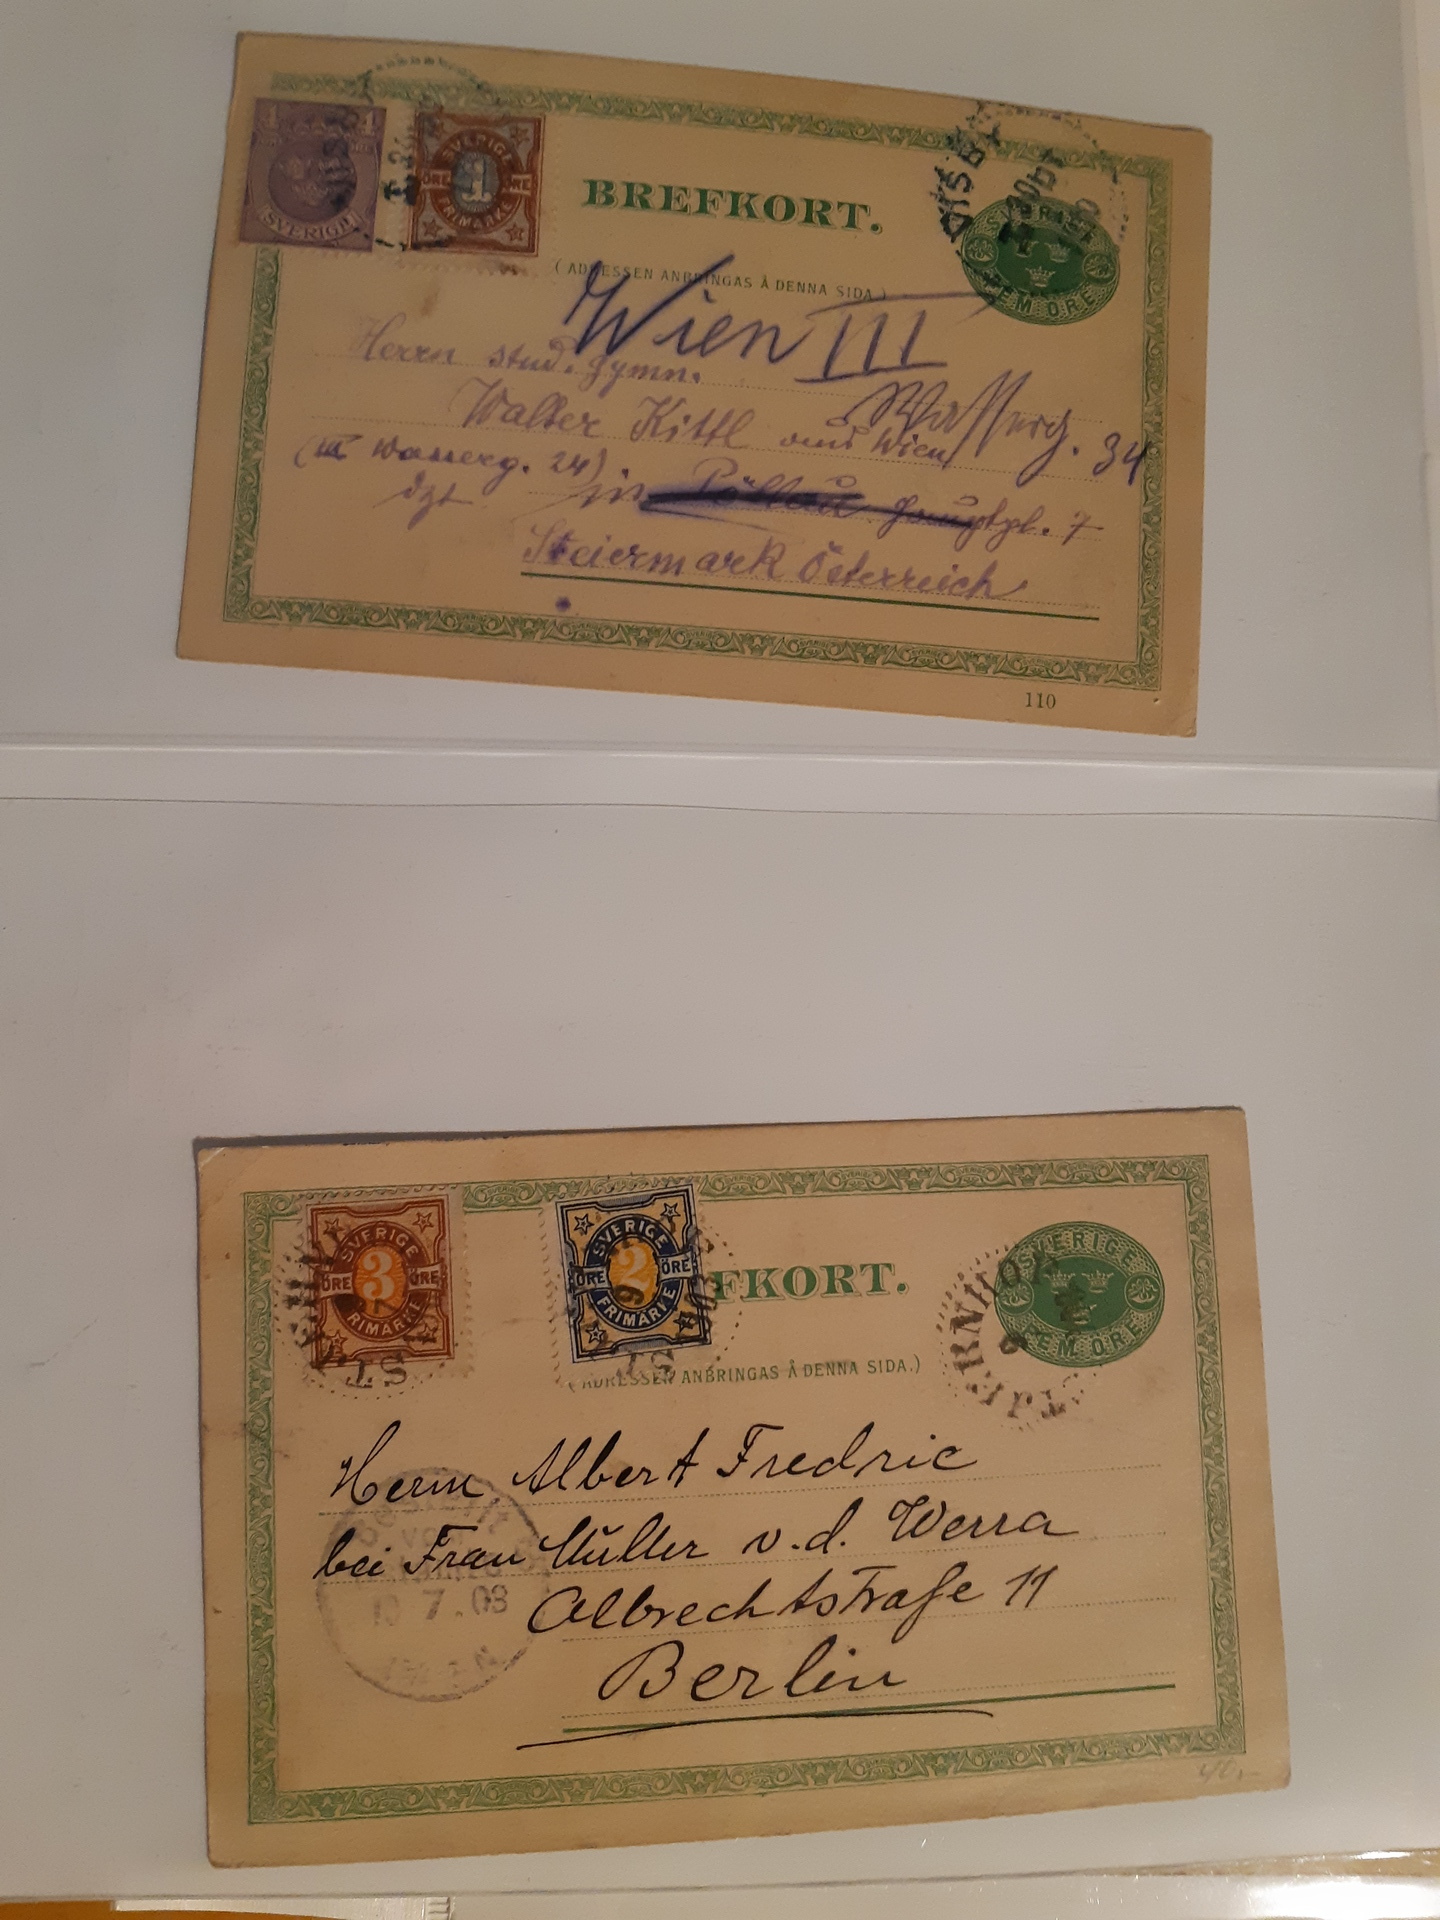 4 4
ÖRE
SVERIGE
SVERIGE
ÖRE 1 ÖRE
FRIMÄRKE
DISBY
BREFKORT.
SVERIGE
FEM ÖRE
(ADRESSEN ANBRINGAS Å DENNA SIDA.)
Wien III
Wasserg. 34
Herrn stud. gymn.
Walter Kittl aus Wien
(III Wasserg. 24).
dzt in Pöllau Hauptpl. 7
Steiermark Österreich
110
SVERIGE
ÖRE 3 ÖRE
FRIMÄRKE
SVERIGE
ÖRE 2 ÖRE
FRIMÄRKE
FKORT.
SVERIGE
FEM ÖRE
STJERNHOF
(ADRESSEN ANBRINGAS Å DENNA SIDA.)
Herrn Albert Fredric
bei Frau Müller v. d. Werra
Albrechtstraße 11
Berlin
7.03
40,-